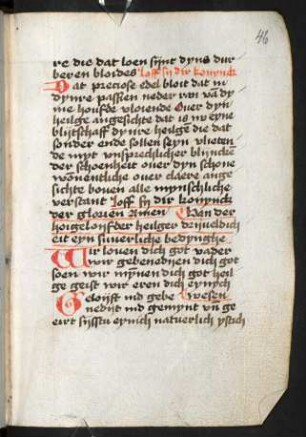 46
re die dat loen sijnt dyns dur
beren bloides Loff sy dir konynck
Dat preciose edel bloit dat in
dynre passien neder ran van dy
me houfde vloiende Over dyn
heilge angesichte dat is nv eyne
blijtschaff dynre heilgē die dat
sonder ende sollen seyn vlieten
de myt vnsprechlicher blincke
der schoenheit over dyn schone
wonentliche over claere ange
sichte boven alle mynschliche
verstant Loff sy dir konynck
der glorien Amen Van der
hoigeloifder heilger drijveldich
eit eyn suverliche bedynghe
Wir loven dich got vader
wir gebenedyen dich got
soen wir mynnen dich got heil
ge geist wir eren dich eynich
Geloift ind gebe wesen
nedijt ind gemynt vn̄ ge
eirt sijstu eynich natuerlich